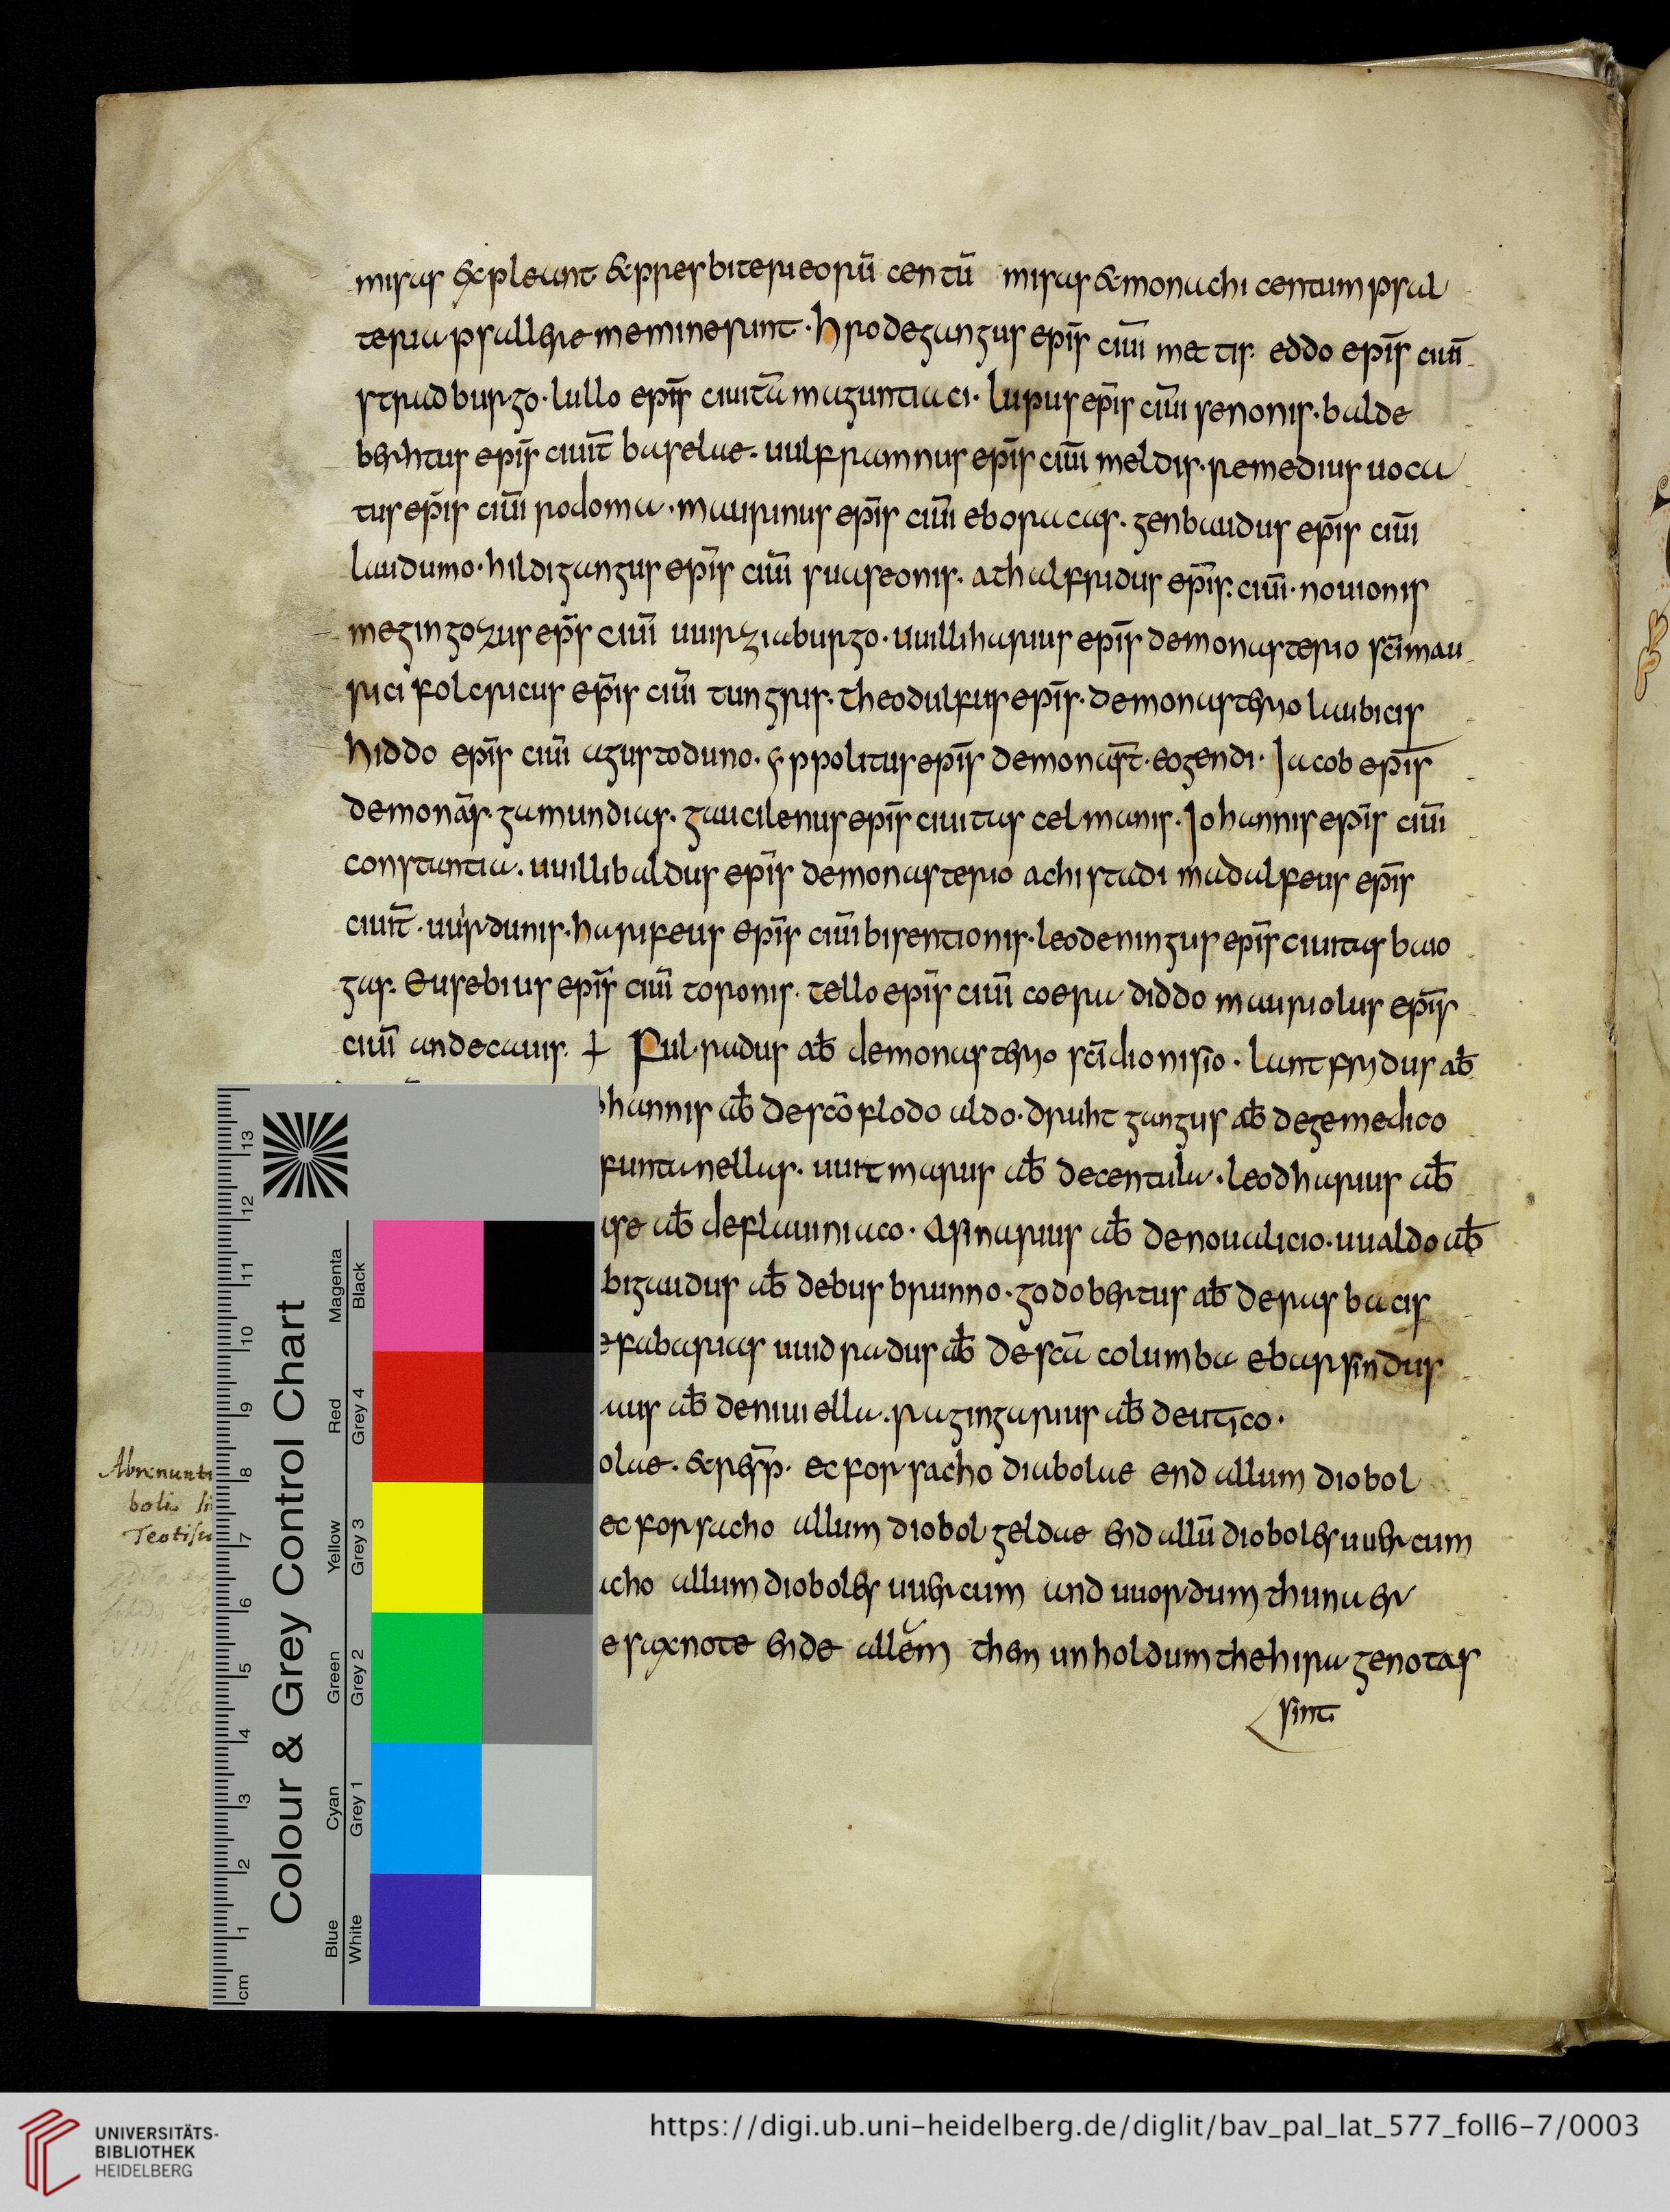 misas &xpleant &presbiteri eorū centū misas & monachi centum psal
teria psallere meminerunt · hrodegangus epīs ciui̅ mettis · eddo epīs ciui̅
stradburgo · lullo epīs ciuitā maguntiaci · lupus epīs ciui̅ senonis · balde
berhtus epīs ciuit̄ baselae · uulframnus epīs ciui̅ meldis · remedius uoca
tus epīs ciui̅ rodoma · maurinus epīs ciui̅ eboracas · genbaudus epīs ciui̅
laudumo · hildigangus epīs ciui̅ suaseonis · athalfridus epīs · ciui̅ · nouionis
megingozus ep̄s ciui̅ uuirziaburgo · uuilliharius epīs de monasterio sc̄i mau
rici folcricus epīs ciui̅ tungris · theodulfus epīs · de monasterio laubicis
hiddo epīs ciui̅ agustoduno · yppolitus epīs de monast̄ · eogendi · Jacob epīs
de monas̄ · gamundias · gaucilenus epīs ciuitas celmanis · Johannis epīs ciui̅
constantia · uuillibaldus epīs de monasterio achistadi madalfeus epīs
ciuit̄ · uirdunis · harifeus epīs ciui̅ bisentionis · leodeningus epīs ciuitas baio
gas · Eusebius epīs ciui̅ toronis · tello epīs ciui̅ coera diddo mauriolus epīs
ciui̅ andecauis · † Fulradus ab̄ de monasterio sc̄i dionisio · lantfridus ab̄
hannis ab̄ de sc̄o flodoaldo · druhtgangus ab̄ de gemedico
funtanellas · uuitmarus ab̄ de centula · leodharius ab̄
ab̄ de flauiniaco · Asinarius ab̄ de noualicio · uualdo ab̄
bigaudus ab̄ de busbrunno · godobertus ab̄ de rasbacis
fabarias uuidradus ab̄ de sc̄a columba ebarsindus
ab̄ de niuiella · ragingarius ab̄ de utico ·
olae · & resp̄ · ec forsacho diabolae end allum diobol
ec forsacho allum diobolgeldae end allū dioboles uuercum
acho allum dioboles uuercum and uuordum thunaer
e saxnote ende allem them unholdum the hira genotas
sint
Abrenunti
Teotis
Colour & Grey Control Chart
Magenta Black
Red Grey 4
Yellow Grey 3
Green Grey 2
Cyan Grey 1
Blue White
13
12
11
10
9
8
7
6
5
4
3
2
1
cm
UNIVERSITÄTS-
BIBLIOTHEK
HEIDELBERG
https://digi.ub.uni-heidelberg.de/diglit/bav_pal_lat_577_foll6-7/0003